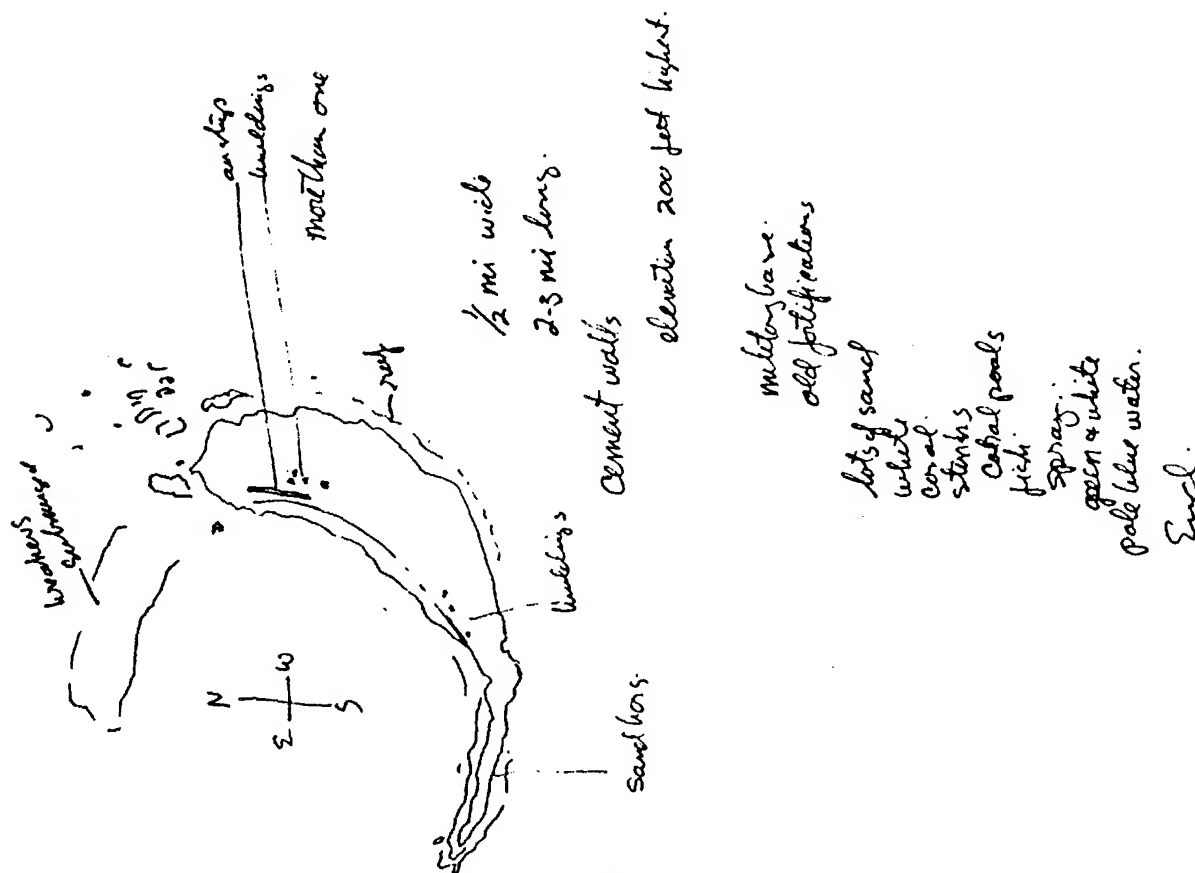 breakers
submerged
airstrip
buildings
more than one
N
E W
S
reef
1/2 mi wide
2-3 mi long.
cement walls
elevation 200 feet highest.
buildings
sand bars.
military base.
old fortifications
lots of sand
white
coral.
stinks
coral pools
fish
spray.
green & white
pale blue water.
End.